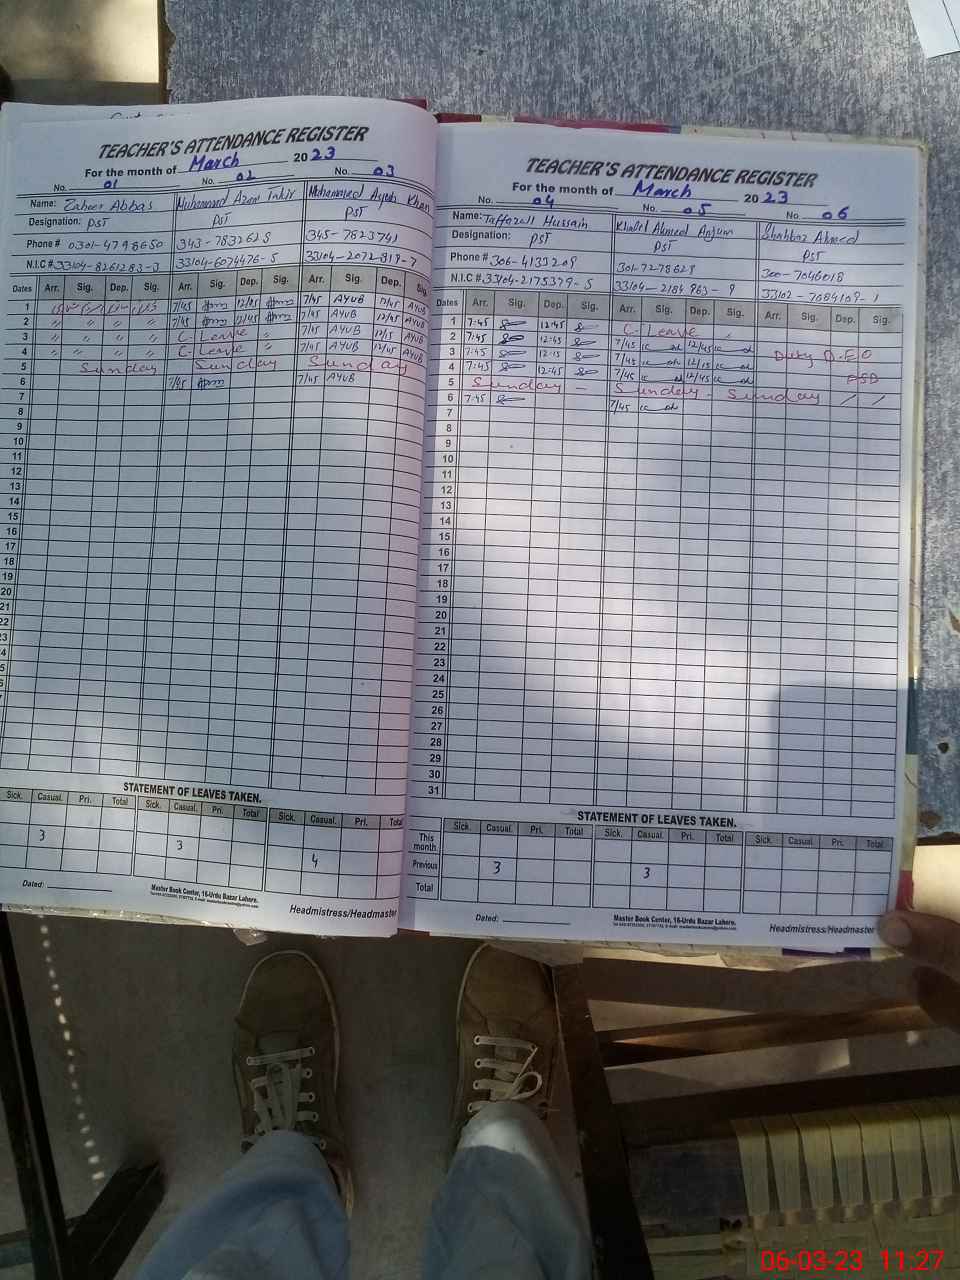 TEACHER'S ATTENDANCE REGISTER
For the month of March 2023
No. 01 No. 02 No. 03
Name: Zaheer Abbas Muhammad Azam Tahir Muhammad Ayub Khan
Designation: PST PST PST
Phone # 0301-4798650 343-7832625 345-7823741
N.I.C # 33104-8261283-3 33104-6074476-5 33104-2072-819-7
Dates Arr. Sig. Dep. Sig. Arr. Sig. Dep. Sig. Arr. Sig. Dep. Sig.
1 7/45 12/45 7/45 AYUB 12/45 AYUB
2 " " " " 7/45 12/45 7/45 AYUB 12/45 AYUB
3 " " " " C-Leave " 7/45 AYUB 12/15 AYUB
4 " " " " C-Leave " 7/45 AYUB 12/45 AYUB
5 Sunday Sunday Sunday
6 7/45 7/45 AYUB
7
8
9
10
11
12
13
14
15
16
17
18
19
20
21
22
23
24
STATEMENT OF LEAVES TAKEN.
Sick. Casual. Pri. Total Sick. Casual. Pri. Total Sick. Casual. Pri. Total
3 3 4
Dated:
Master Book Center, 16-Urdu Bazar Lahore.
Headmistress/Headmaster
TEACHER'S ATTENDANCE REGISTER
For the month of March 2023
No. 04 No. 05 No. 06
Name: Hussain Khalel Ahmed Anjum Shahbaz Ahmed
Designation: PST PST PST
Phone # 306-4133209 301-7278628 300-7046018
N.I.C # 33104-2175379-5 33104-2184983-9 33102-7084109-1
Dates Arr. Sig. Dep. Sig. Arr. Sig. Dep. Sig. Arr. Sig. Dep. Sig.
1 7:45 12:45 C-Leave
2 7:45 12:45 7/45 12/45
3 7:45 12:15 7/45 12/45 Duty D.E.O
4 7:45 12:45 7/45 12/45 FSD
5 Sunday - Sunday - Sunday
6 7:45 7/45
7
8
9
10
11
12
13
14
15
16
17
18
19
20
21
22
23
24
25
26
27
28
29
30
31
STATEMENT OF LEAVES TAKEN.
Sick. Casual. Pri. Total Sick. Casual. Pri. Total Sick. Casual. Pri. Total
This month
Previous 3 3
Total
Dated:
Master Book Center, 16-Urdu Bazar Lahore.
Headmistress/Headmaster
06-03-23 11:27